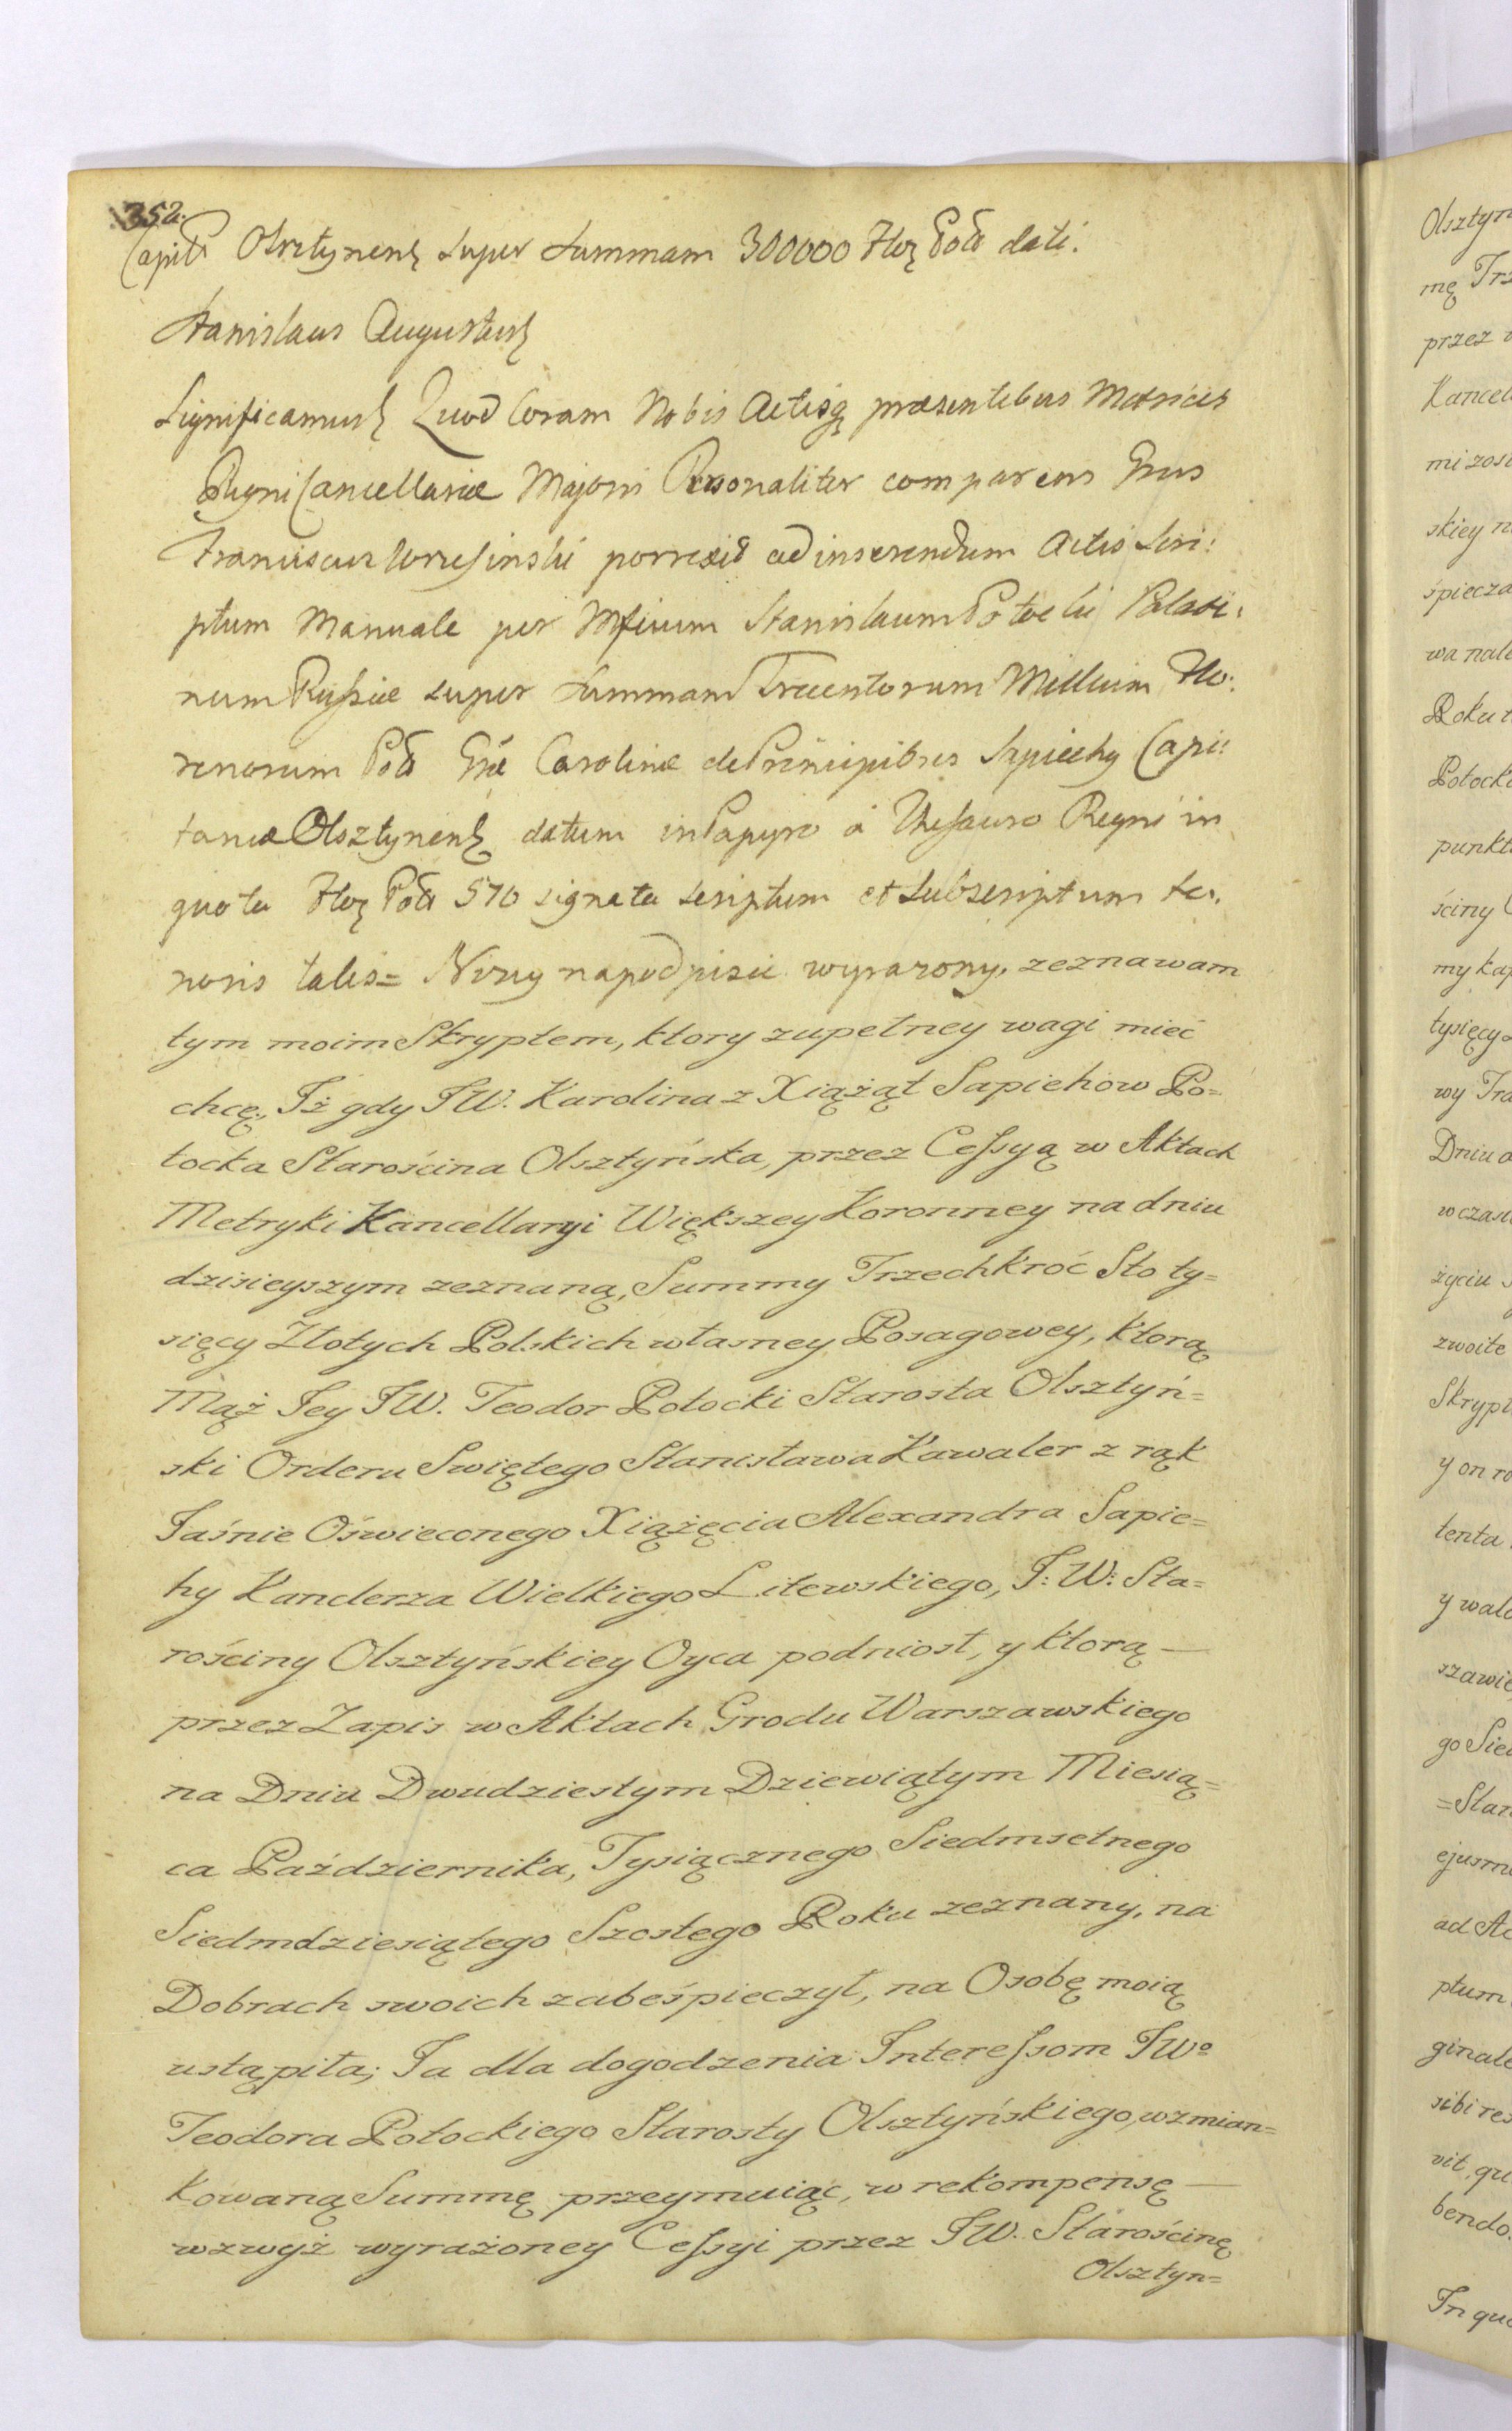 352.
Capit Olsztynens super Summam 300000 Flor Pol dati.
Stanislaus Augustus
Significamus Quod Coram Nobis Actisq præsentibus Metrices
Regni Cancellariæ Majoris Personaliter comparens Gnus
Franciscus Wrzesinski porrexit ad inserendum Actis Scri:
ptum Manuale per Mficum Stanislaum Potocki Palati:
num Russiæ super Summam Trecentorum Millium Flo:
renorum Pol Carolinæ de Principibus Sapiehy Capi:
taneæ Olsztynens datum in Papyro à Thesauro Regni in
quota Flor Pol 570 signata scriptum et subscriptum te:
noris talis= Niżey na podpisie wyrażony, zeznawam
tym moim Skryptem, ktory zupełney wagi mieć
chcę, Iż gdy JW. Karolina z Xiążąt Sapiehow Po=
tocka Starościna Olsztyńska, przez Cessyą w Aktach
Metryki Kancellaryi Większey Koronney na dniu
dzisieyszym zeznaną, Summy Trzechkroć Sto ty=
sięcy Złotych Polskich własney Posagowey, ktorą
Mąż Jey JW. Teodor Potocki Starosta Olsztyń=
ski Orderu Swiętego Stanisława Kawaler z rąk
Jaśnie Oświeconego Xiążęcia Alexandra Sapie=
hy Kanclerza Wielkiego Litewskiego, J: W: Sta=
rościny Olsztyńskiey Oyca podniosł, y ktorą —
przez Zapis w Aktach Grodu Warszawskiego
na Dniu Dwudziestym Dziewiątym Miesią=
ca Października, Tysiącznego Siedmsetnego
Siedmdziesiątego Szostego Roku zeznany, na
Dobrach swoich zabeśpieczył, na Osobę moią
ustąpiła; Ja dla dogodzenia Interessom JWo
Teodora Potockiego Starosty Olsztyńskiego, wzmian=
kowaną Summę przeymuiąc, w rekompensę —
wzwyż wyrażoney Cessyi przez JW. Starościnę
Olsztyn=